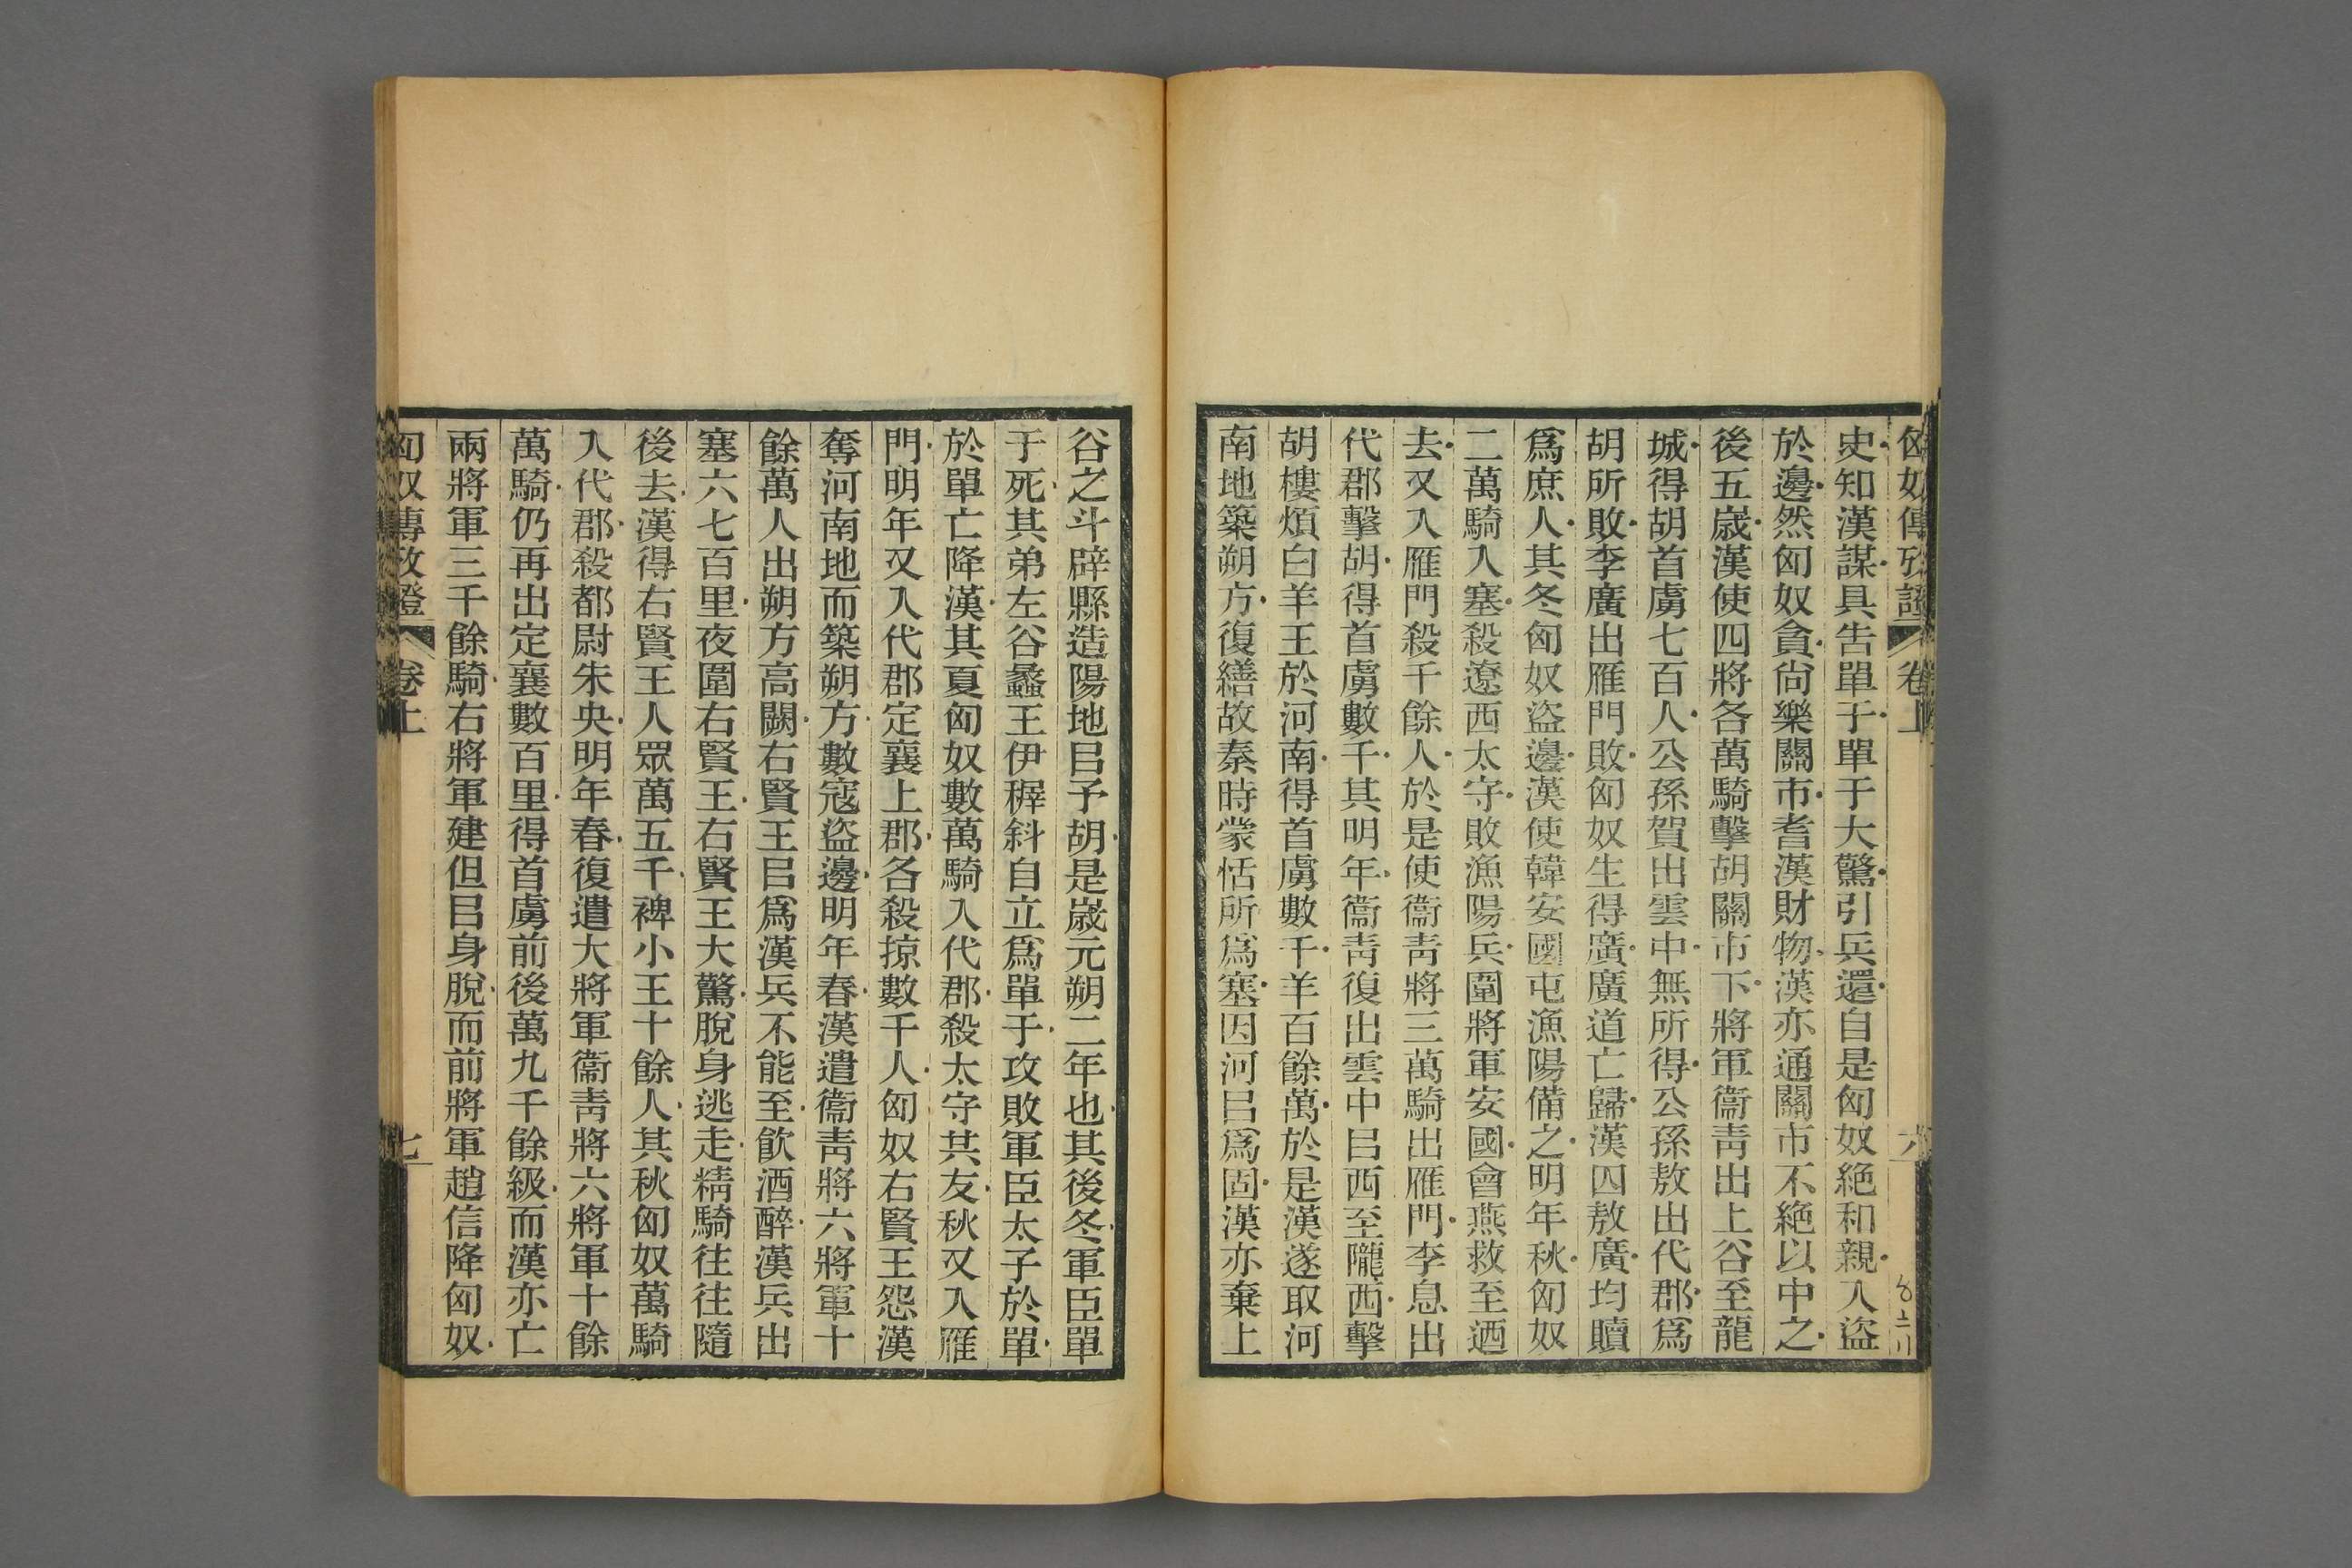 匈奴傳攷證 卷上 六
史知漢謀具告單于單于大驚引兵還自是匈奴絶和親入盜
於邊然匈奴貪尙樂關市耆漢財物漢亦通關市不絶以中之
後五歲漢使四將各萬騎擊胡關市下將軍衞靑出上谷至龍
城得胡首虜七百人公孫賀出雲中無所得公孫敖出代郡爲
胡所敗李廣出雁門敗匈奴生得廣廣道亡歸漢囚敖廣均贖
爲庶人其冬匈奴盜邊漢使韓安國屯漁陽備之明年秋匈奴
二萬騎入塞殺遼西太守敗漁陽兵圍將軍安國會燕救至迺
去又入雁門殺千餘人於是使衞靑將三萬騎出雁門李息出
代郡擊胡得首虜數千其明年衞靑復出雲中㠯西至隴西擊
胡樓煩白羊王於河南得首虜數千羊百餘萬於是漢遂取河
南地築朔方復繕故秦時蒙恬所爲塞因河㠯爲固漢亦棄上
谷之斗辟縣造陽地㠯予胡是歲元朔二年也其後冬軍臣單
于死其弟左谷蠡王伊穉斜自立爲單于攻敗軍臣太子於單
於單亡降漢其夏匈奴數萬騎入代郡殺太守共友秋又入雁
門明年又入代郡定襄上郡各殺掠數千人匈奴右賢王怨漢
奪河南地而築朔方數寇盜邊明年春漢遣衞靑將六將軍十
餘萬人出朔方高闕右賢王㠯爲漢兵不能至飮酒醉漢兵出
塞六七百里夜圍右賢王右賢王大驚脫身逃走精騎往往隨
後去漢得右賢王人眾萬五千裨小王十餘人其秋匈奴萬騎
入代郡殺都尉朱央明年春復遣大將軍衞靑將六將軍十餘
萬騎仍再出定襄數百里得首虜前後萬九千餘級而漢亦亡
兩將軍三千餘騎右將軍建但㠯身脫而前將軍趙信降匈奴
匈奴傳攷證 卷上 七